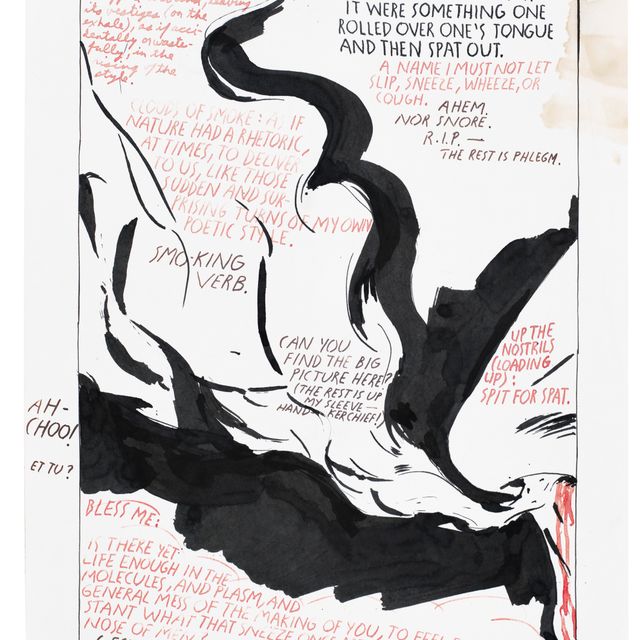 its vestiges (on the
exhale), as if acci-
dentally, or waste-
fully, in the
style.
IT WERE SOMETHING ONE
ROLLED OVER ONE'S TONGUE
AND THEN SPAT OUT.
A NAME I MUST NOT LET
SLIP, SNEEZE, WHEEZE, OR
COUGH.
AHEM.
NOR SNORE.
R.I.P. —
THE REST IS PHLEGM.
CLOUDS OF SMOKE: AS IF
NATURE HAD A RHETORIC,
AT TIMES, TO DELIVER
TO US, LIKE THOSE
SUDDEN AND SUR-
PRISING TURNS OF MY OWN
POETIC STYLE.
SMO-KING
VERB.
CAN YOU
FIND THE BIG
PICTURE HERE?
(THE REST IS UP
MY SLEEVE —
HAND KERCHIEF!)
UP THE
NOSTRILS
(LOADING
UP):
SPIT FOR SPAT.
AH-
CHOO!
ET TU?
BLESS ME:
IS THERE YET
LIFE ENOUGH IN THE
MOLECULES, AND PLASM, AND
GENERAL MESS OF THE MAKING OF YOU, TO FEEL
STANT WHAT THAT SNEEZE ONCE
NOSE OF MEN?